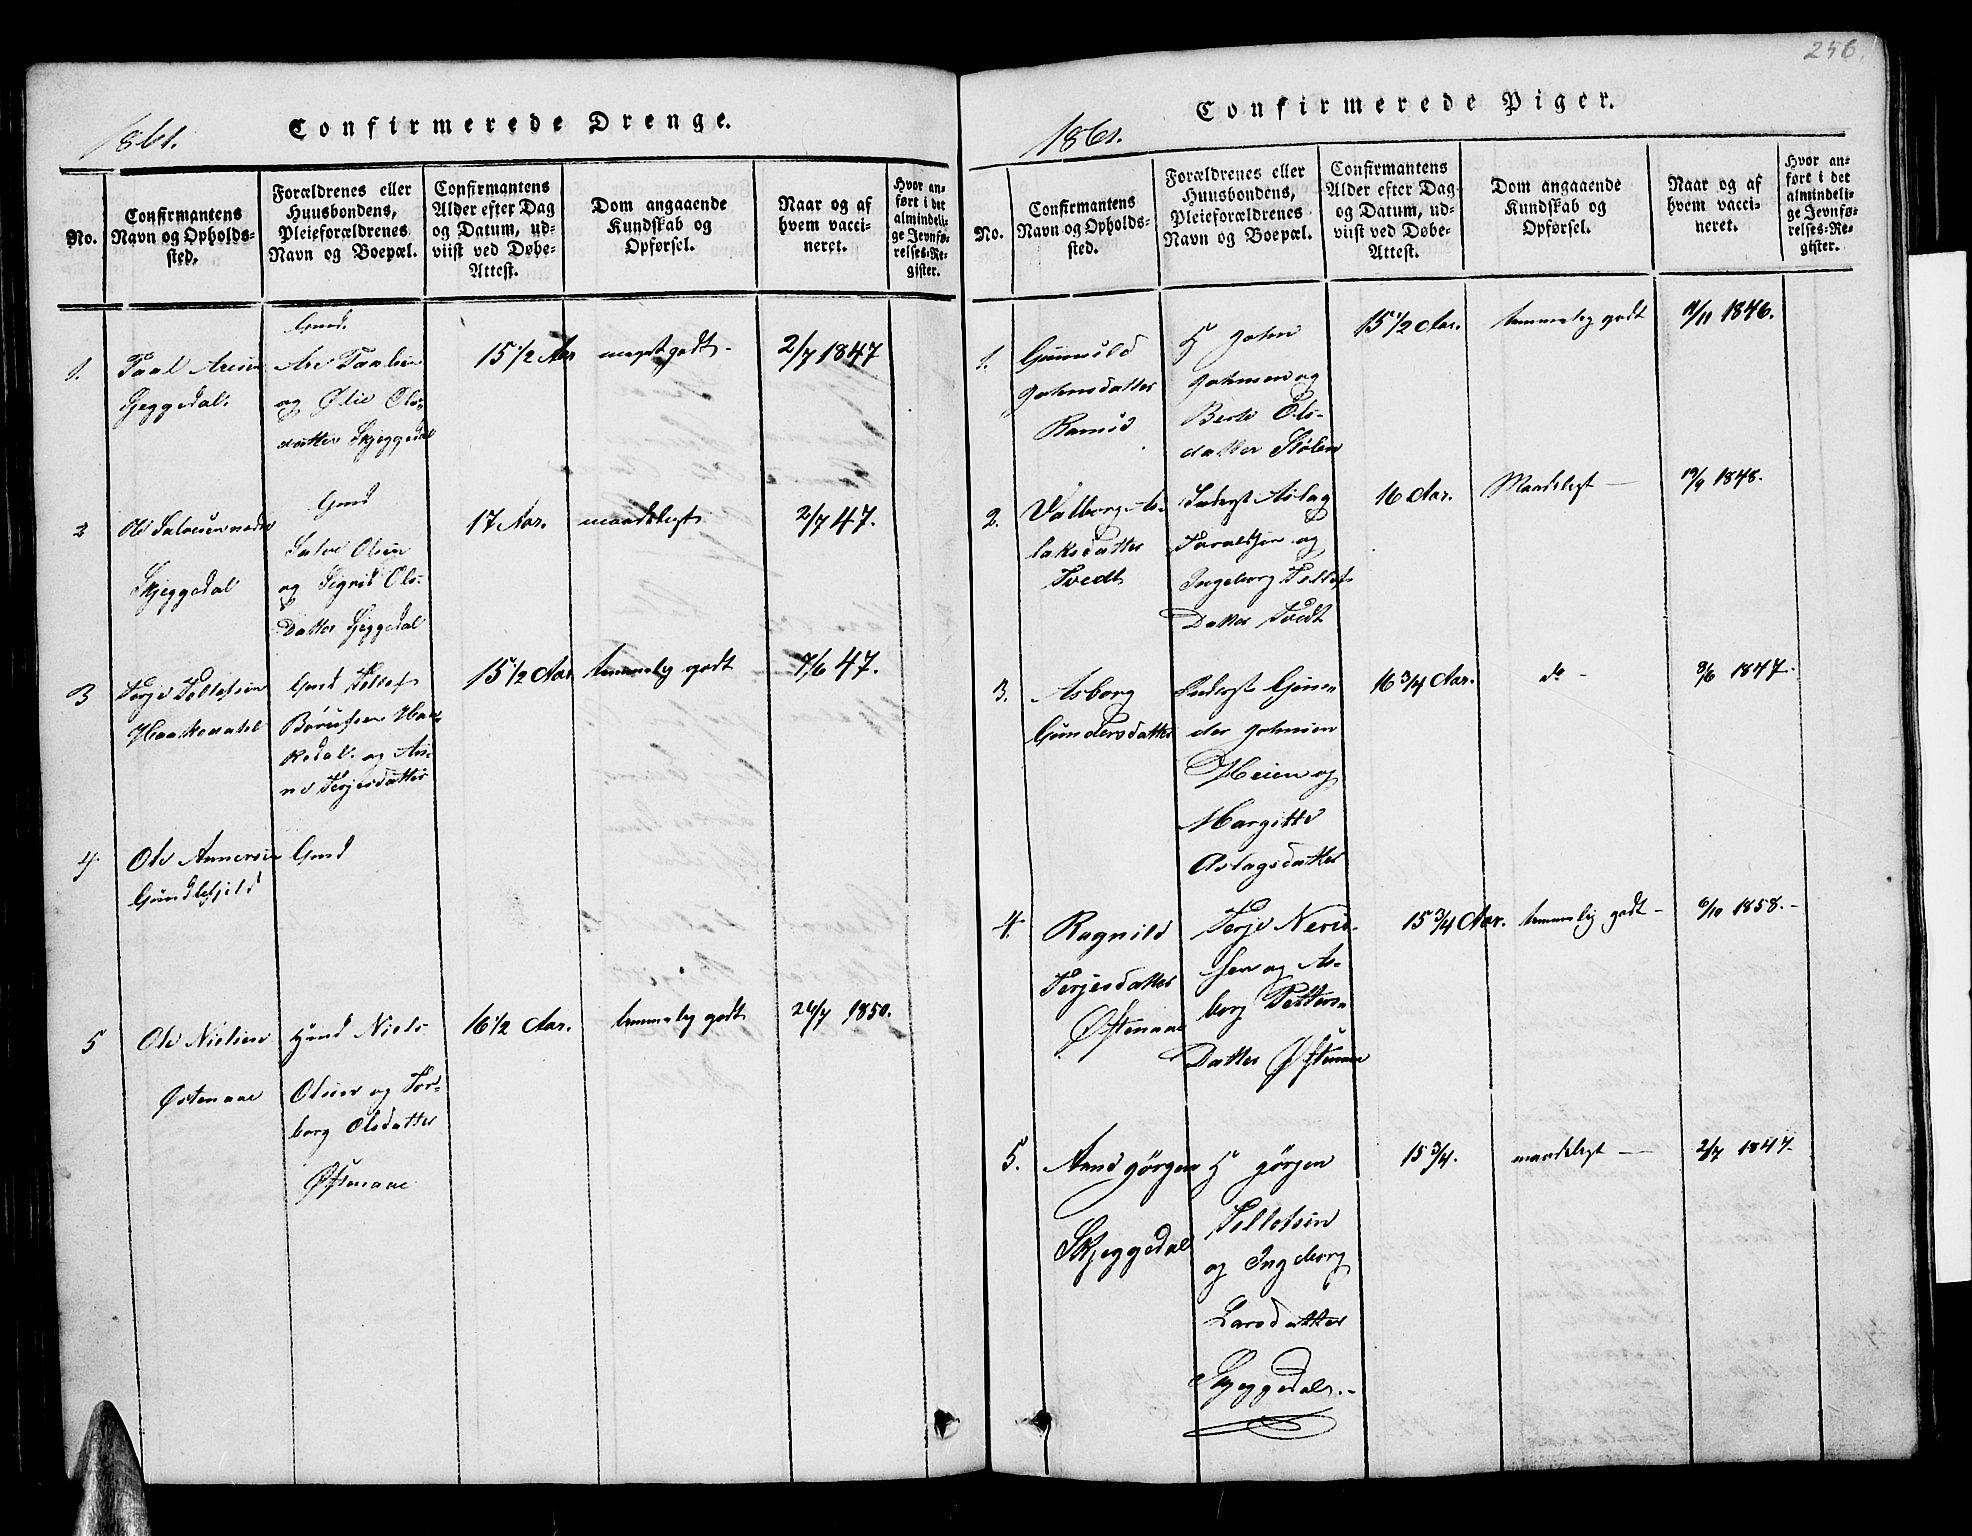 256.
1861.
Confirmerede Drenge.
No.
Confirmantens
Navn og Opholds=
sted.
Forældrenes eller
Huusbondens,
Pleieforældrenes
Navn og Boepæl.
Confirmantens
Alder efter Dag
og Datum, ud=
viist ved Døbe=
Attest.
Dom angaaende
Kundskab og
Opførsel.
Naar og af
hvem vacci=
neret.
Hvor an=
ført i det
almindeli=
ge Jevnfø=
relses=Re=
gister.
1.
Paal Aresen
Sjeggedal.
Gmd.
Are Paalsen
og Ølie Ols=
datter Skjeggedal
15 1/2 Aar
meget godt -
2/7 1847
2
Ole Salvesen
Skjeggedal
Gmd
Salve Olsen
og Sigrid Ols=
Datter Sjeggedal
17 Aar.
maadeligt
2/7 47.
3
Terje Tellefsen
Gmd Tellef
og
Terjesdatter
15 1/2 Aar
temmelig godt
7/6 47.
4
Ole
Gmd
5
Ole Nielsen
Østenaae
Niels
Olsen og Tor=
borg Olsdatter
Østenaae
16 1/2 Aar.
temmelig godt
26/7 1850.
1861.
Confirmerede Piger.
No.
Confirmantens
Navn og Opholds=
sted.
Forældrenes eller
Huusbondens,
Pleieforældrenes
Navn og Boepæl.
Confirmantens
Alder efter Dag
og Datum, ud=
viist ved Døbe=
Attest.
Dom angaaende
Kundskab og
Opførsel.
Naar og af
hvem vacci=
neret.
Hvor an=
ført i det
almindeli=
ge Jevnfø=
relses=Re=
gister.
1.
Gunnild
Johnsdatter
Ramse
John
Johnsen og
Berte Ols=
datter Stølen
15 1/2 Aar.
temmelig godt
11/11 1846.
2.
Valborg As=
laksdatter
Tvedt
Inderst Aslag
Taraldsen og
Ingeborg Tellefs
Datter Tvedt
16 Aar.
Maadeligt -
19/9 1848.
3.
Asborg
Gundersdatter
Inderst Gun=
der Johnsen
Heien og
Margitte
Aslagsdatter
16 3/4 Aar.
do -
9/6 1847.
4.
Ragnild
Terjesdatter
Østenaae
Terje Neri=
sen og As=
borg Petters=
Datter Østenaae
15 3/4 Aar.
temmelig godt -
6/10 1858.-
5.
Anne Jørgen
Skjeggedal
Jørgen
Tellefsen
og Ingeborg
Larsdatter
Skjeggedal.-
15 3/4.
maadeligt -
2/7 1847.